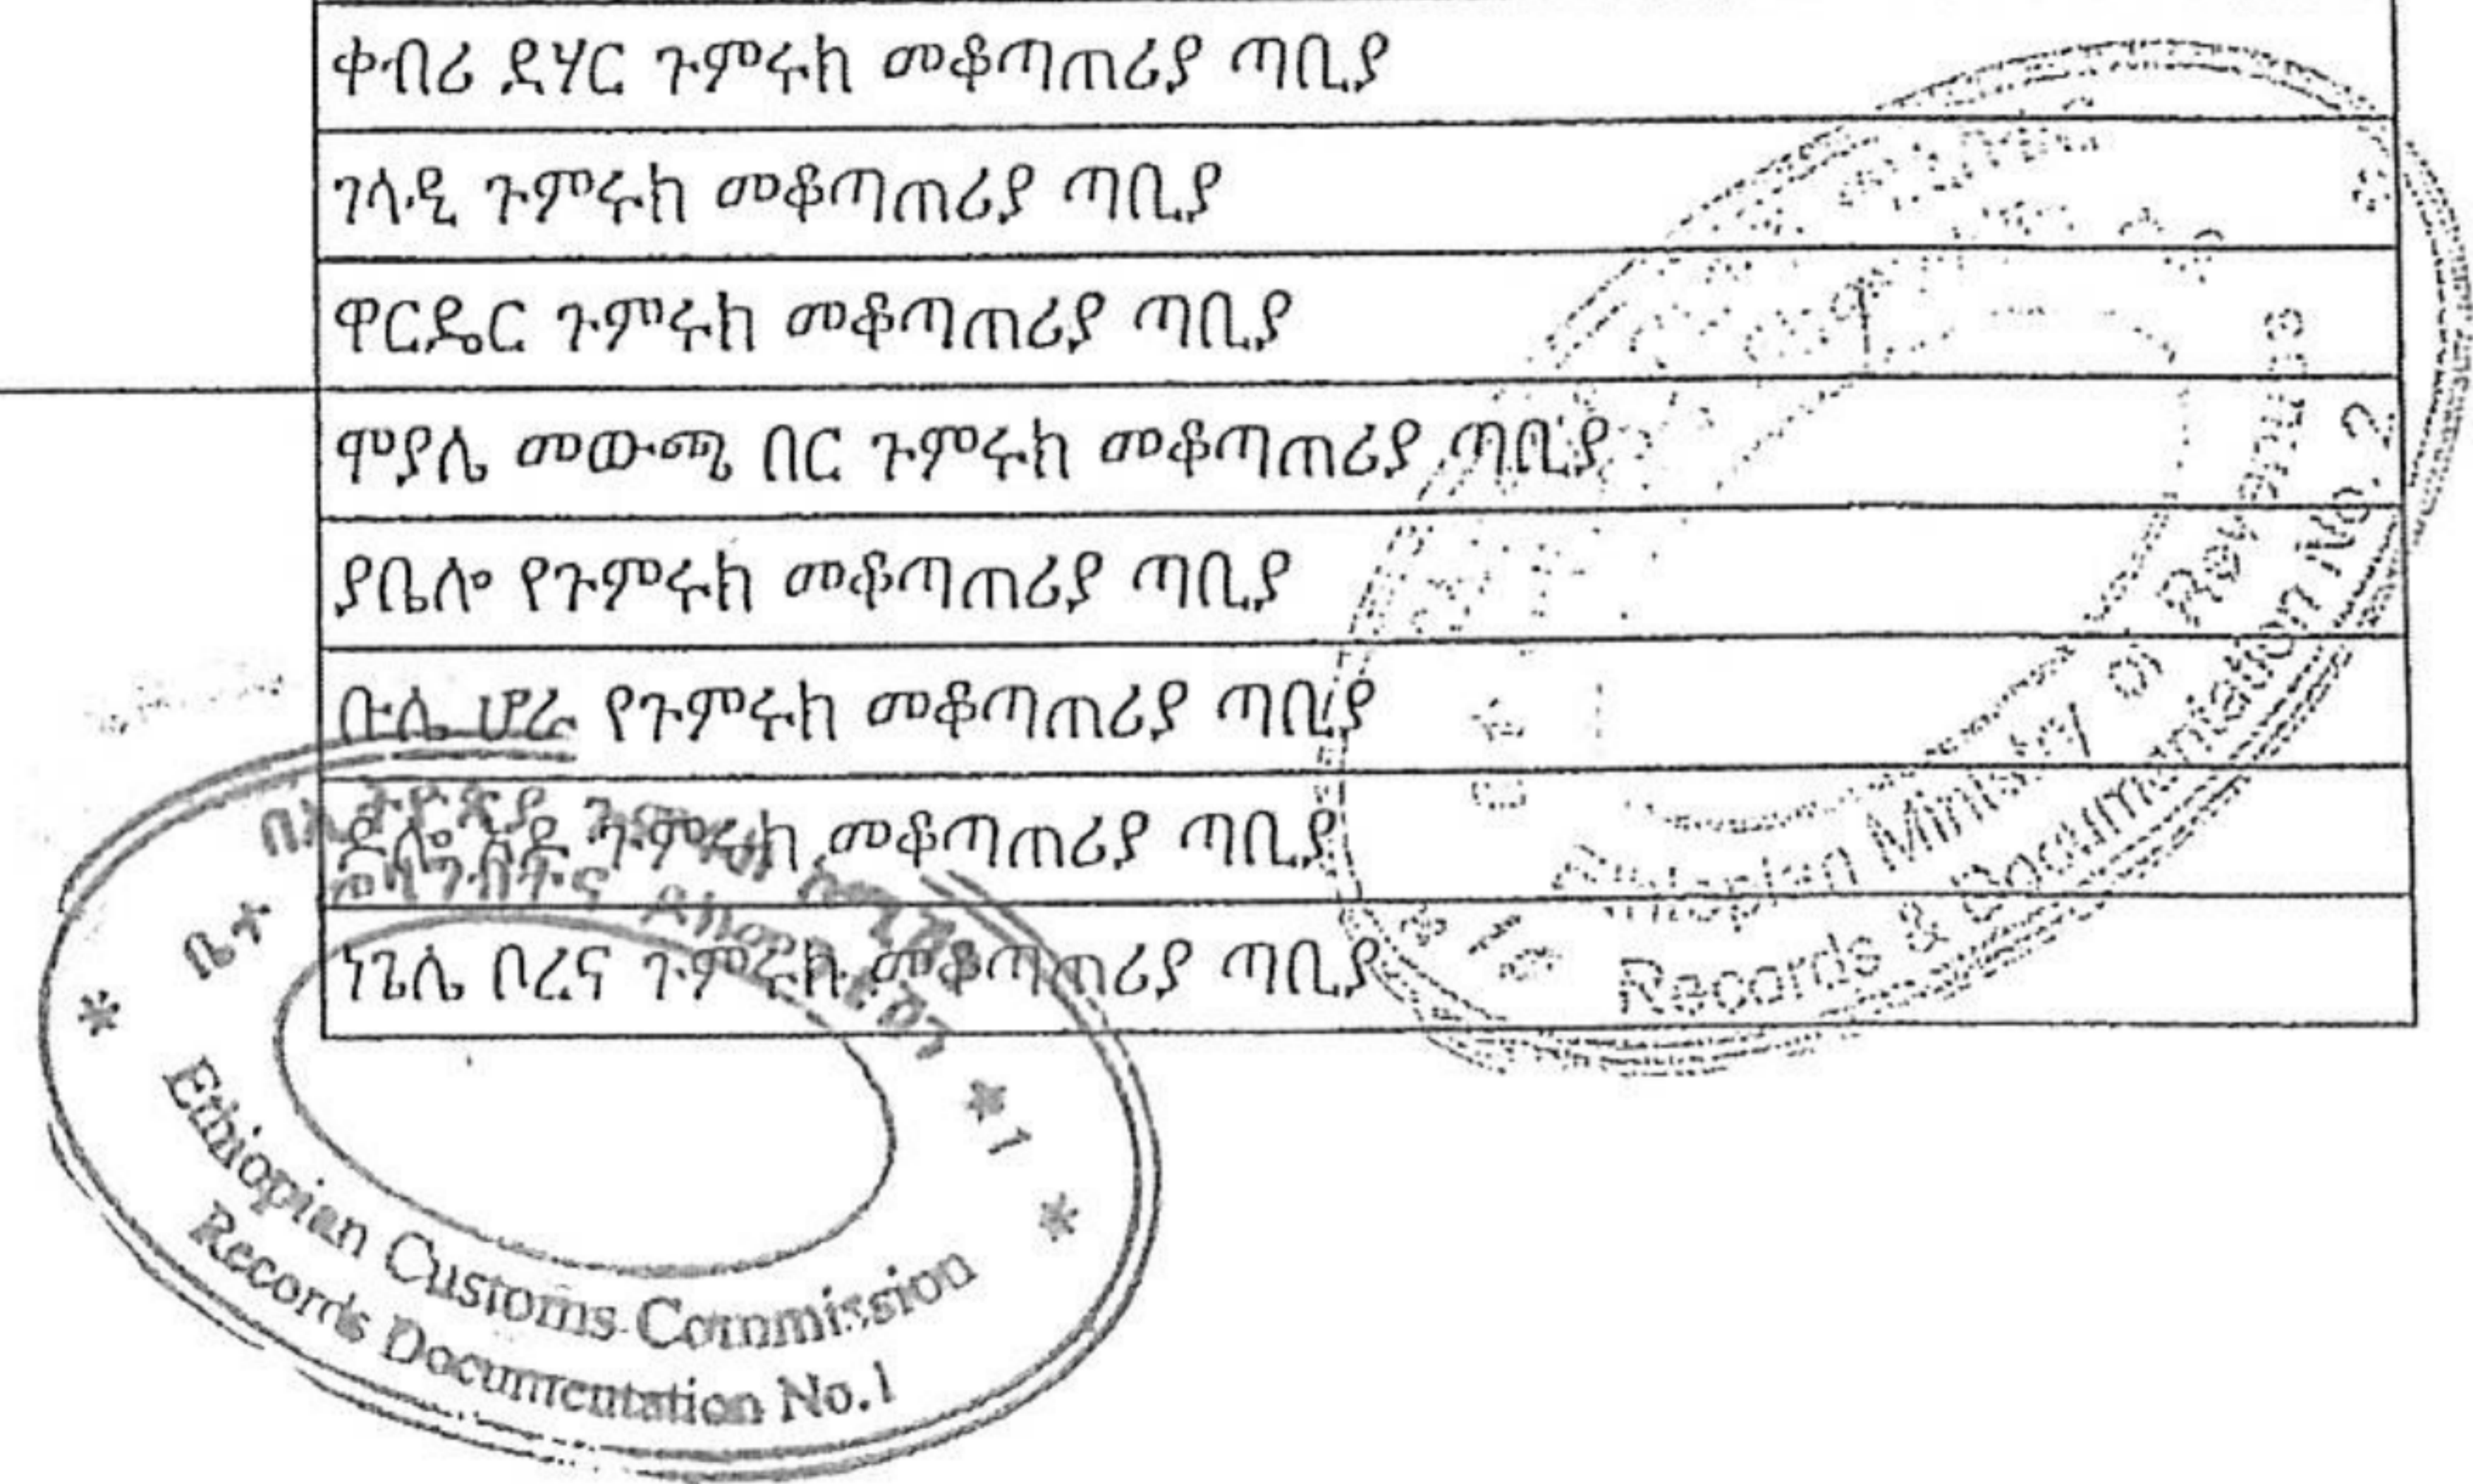 ቀብሪ ደሃር ጉምሩክ መቆጣጠሪያ ጣቢያ
ገላዲ ጉምሩክ መቆጣጠሪያ ጣቢያ
ዋርዴር ጉምሩክ መቆጣጠሪያ ጣቢያ
ሞያሌ መውጫ በር ጉምሩክ መቆጣጠሪያ ጣቢያ
ያቤሎ የጉምሩክ መቆጣጠሪያ ጣቢያ
ቡሌ ሆራ የጉምሩክ መቆጣጠሪያ ጣቢያ
ዶሎ ኦዶ ጉምሩክ መቆጣጠሪያ ጣቢያ
ነጌሌ ቦረና ጉምሩክ መቆጣጠሪያ ጣቢያ
Ethiopian Ministry of Revenues
Records & Documentation No. 2
በኢትዮጵያ ጉምሩክ ኮሚሽን
Ethiopian Customs Commission
Records Documentation No.1